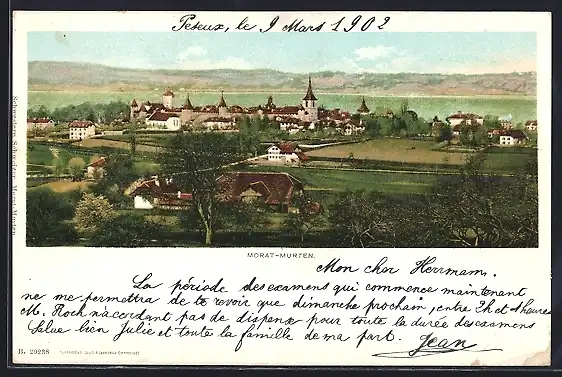 Peseux, le 9 Mars 1902
MORAT-MURTEN.
Mon cher Hermann.
La période des examens qui commence maintenant
ne me permettra de te revoir que dimanche prochain, entre 2h et 4 heures
M. Roch n'accordant pas de dispense pour toute la durée des examens
Salue bien Julie et toute la famille de ma part. Jean